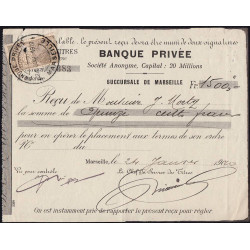 valable, le présent reçu devra être muni de deux signatures
BANQUE PRIVÉE
TITRES
Société Anonyme, Capital: 20 Millions
SUCCURSALE DE MARSEILLE
Fr. 1500,-
Reçu de Monsieur J.
la somme de Quinze cents francs
pour en opérer le placement aux termes de son ordre
No du
Marseille, le 24 Janvier
Pour contrôle
Le Chef du Service des Titres
On est instamment prié de rapporter le présent reçu pour régler